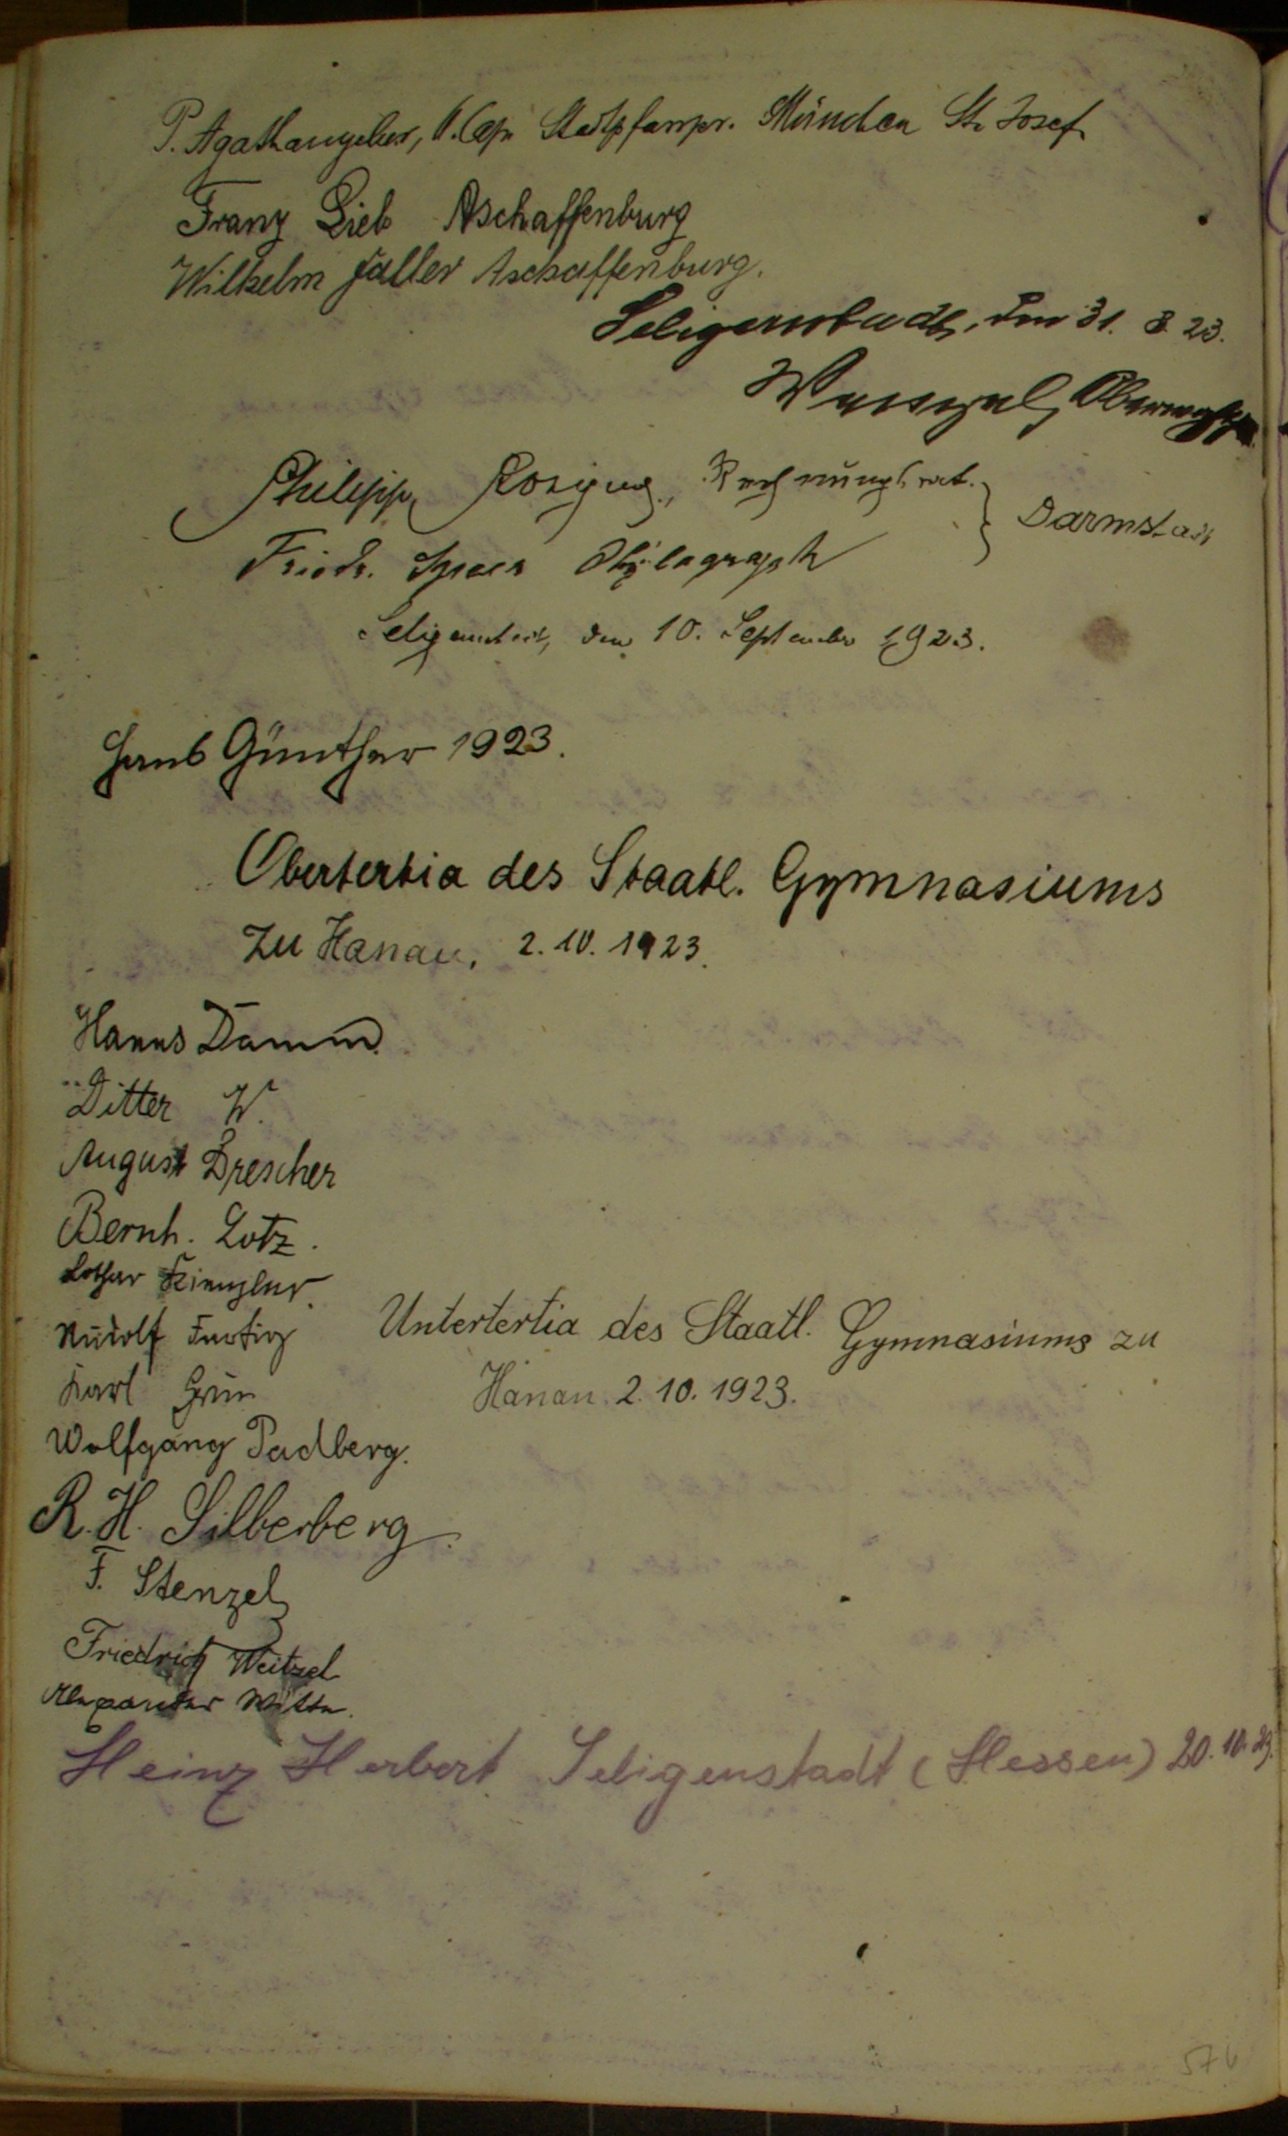 P. Agathangelus, O. Cap. Stadtpfarrpr. München St. Josef
Franz Lieb Aschaffenburg
Wilhelm Faller Aschaffenburg.
Seligenstadt, den 31. 8. 23.
Philipp Rechnungsrat.
Darmstadt
Friedr. Xylograph
Seligenstadt, den 10. September 1923.
Hans Günther 1923.
Obertertia des Staatl. Gymnasiums
zu Hanau, 2.10.1923.
Hanns Damm
Ditter W.
August Drescher
Bernh. Lotz.
Lothar Kienzler.
Untertertia des Staatl. Gymnasiums zu
Rudolf
Karl Grün
Hanau 2.10.1923.
Wolfgang Padberg.
R. H. Silberberg.
F. Stenzel
Friedrich Weitzel
Alexander Witte.
Heinz Herbert Seligenstadt (Hessen) 20.10.23.